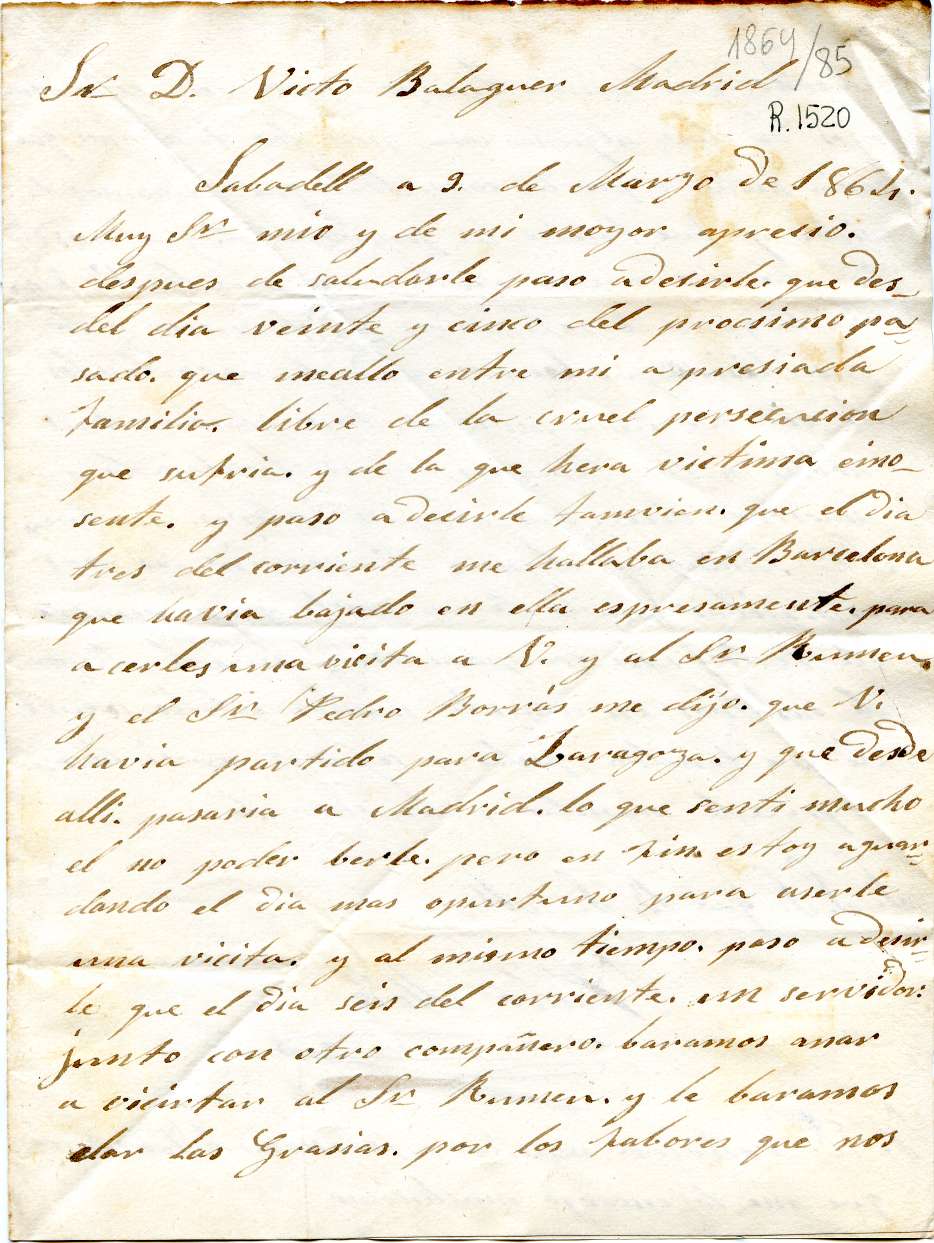 1864/85
Sr. D. Victo Balaguer Madrid
R.1520
Sabadell a 9. de Marzo de 1864.
Muy Sr mio y de mi moyor apresio.
despues de saludarle paso adesirle. que des-
del dia veinte y cinco del procsimo pa-
sado. que meallo entre mi apresiada
familia. libre de la cruel persecucion
que sufria. y de la que hera victima eino-
sente. y paso adecirle tamvien. que el dia
tres del corriente me hallaba en Barselona
que havia bajado en ella espresamente. para
acerles una vicita a V. y al Sr Rumeu.
y el Sr Pedro Borrás me dijo. que V.
havia partido para Zaragoza. y que desde
alli. pasaria a Madrid. lo que senti mucho
el no poder berle. pero en fin estoy aguar-
dando el dia mas opurtuno para aserle
una vicita. y al mismo tiempo. paso adesir-
le que el dia seis del corriente. un servidor:
junto con otro compañero. baramos anar
a vicirtar al Sr Rumeu. y le baramos
dar las Grasias. por los fabores que nos